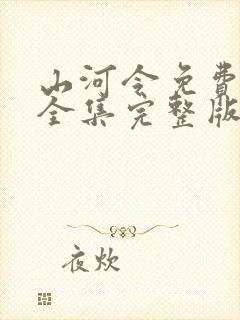 山河令免费
全集完整版
夜炊